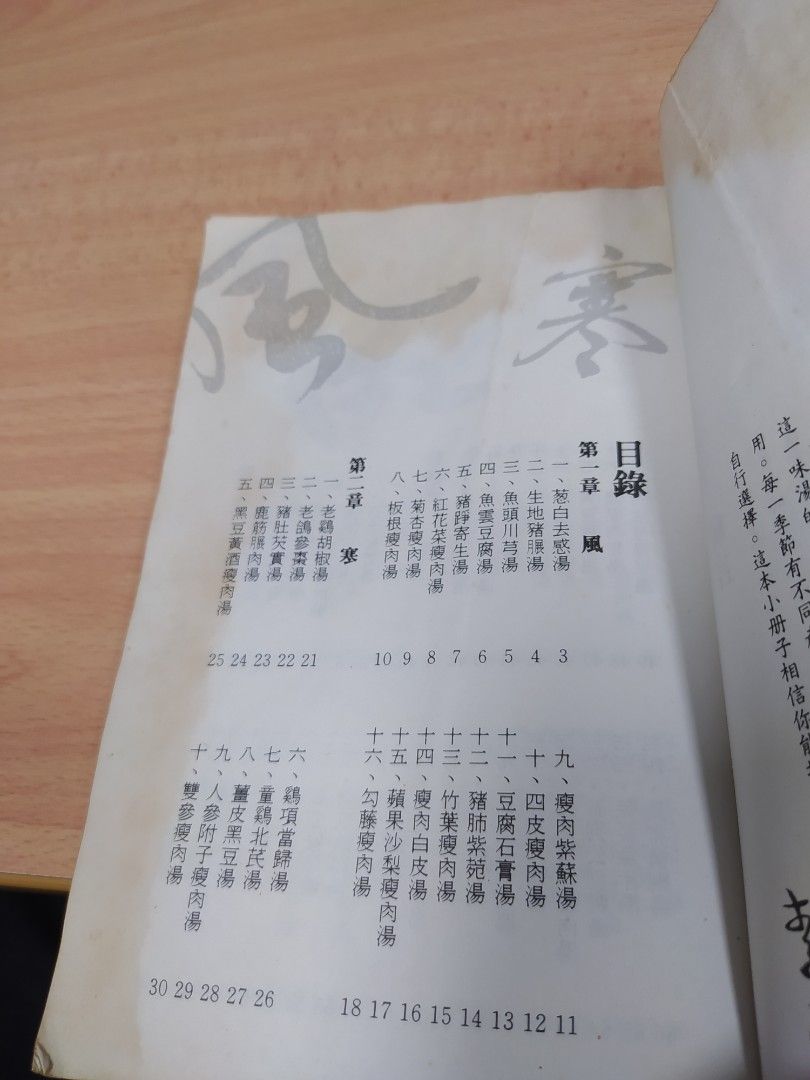 風 寒
目錄
第一章 風
一、葱白去感湯 3
二、生地豬𦟌湯 4
三、魚頭川芎湯 5
四、魚雲豆腐湯 6
五、豬踭寄生湯 7
六、紅花菜瘦肉湯 8
七、菊杏瘦肉湯 9
八、板根瘦肉湯 10
九、瘦肉紫蘇湯 11
十、四皮瘦肉湯 12
十一、豆腐石膏湯 13
十二、豬肺紫菀湯 14
十三、竹葉瘦肉湯 15
十四、瘦肉白皮湯 16
十五、蘋果沙梨瘦肉湯 17
十六、勾藤瘦肉湯 18
第二章 寒
一、老鷄胡椒湯 21
二、老鴿參棗湯 22
三、豬肚芡實湯 23
四、鹿筋𦟌肉湯 24
五、黑豆黃酒瘦肉湯 25
六、鷄項當歸湯 26
七、童鷄北芪湯 27
八、薑皮黑豆湯 28
九、人參附子瘦肉湯 29
十、雙參瘦肉湯 30
這一味湯的
用。每一季節有不同
自行選擇。這本小册子相信你能